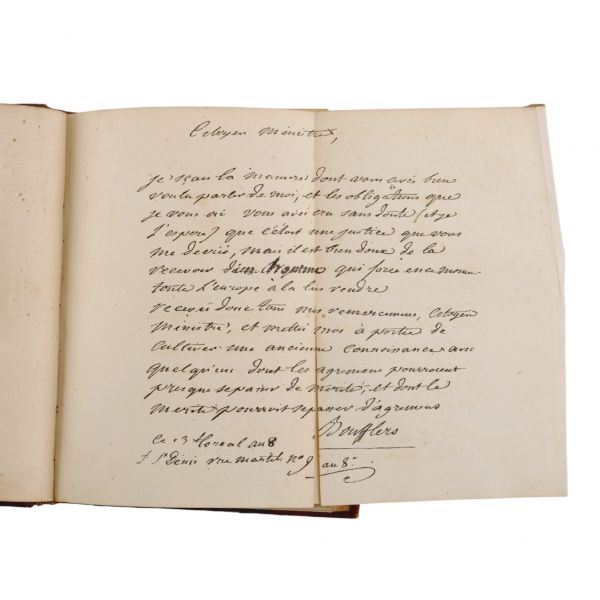 Citoyen Ministre,
je sçau la maniere dont vous avés bien
voulu parler de moi, et les obligations que
je vous ai vous avés cru sans doute (et je
l'espere) que c'étoit une justice que vous
me deviés, mais il est bien doux de la
recevoir d'un homme qui force en ce moment
toute l'Europe à la lui rendre
recevés donc tous mes remerciemens, Citoyen
Ministre, et mettés moi à portée de
cultiver une ancienne connoissance avec
quelqu'un dont les agremens pourroient
presque se passer de merite, et dont le
merite pourroit se passer d'agremens
Boufflers
ce 13 floreal an 8
f. St Denis rue no 9 an 8.